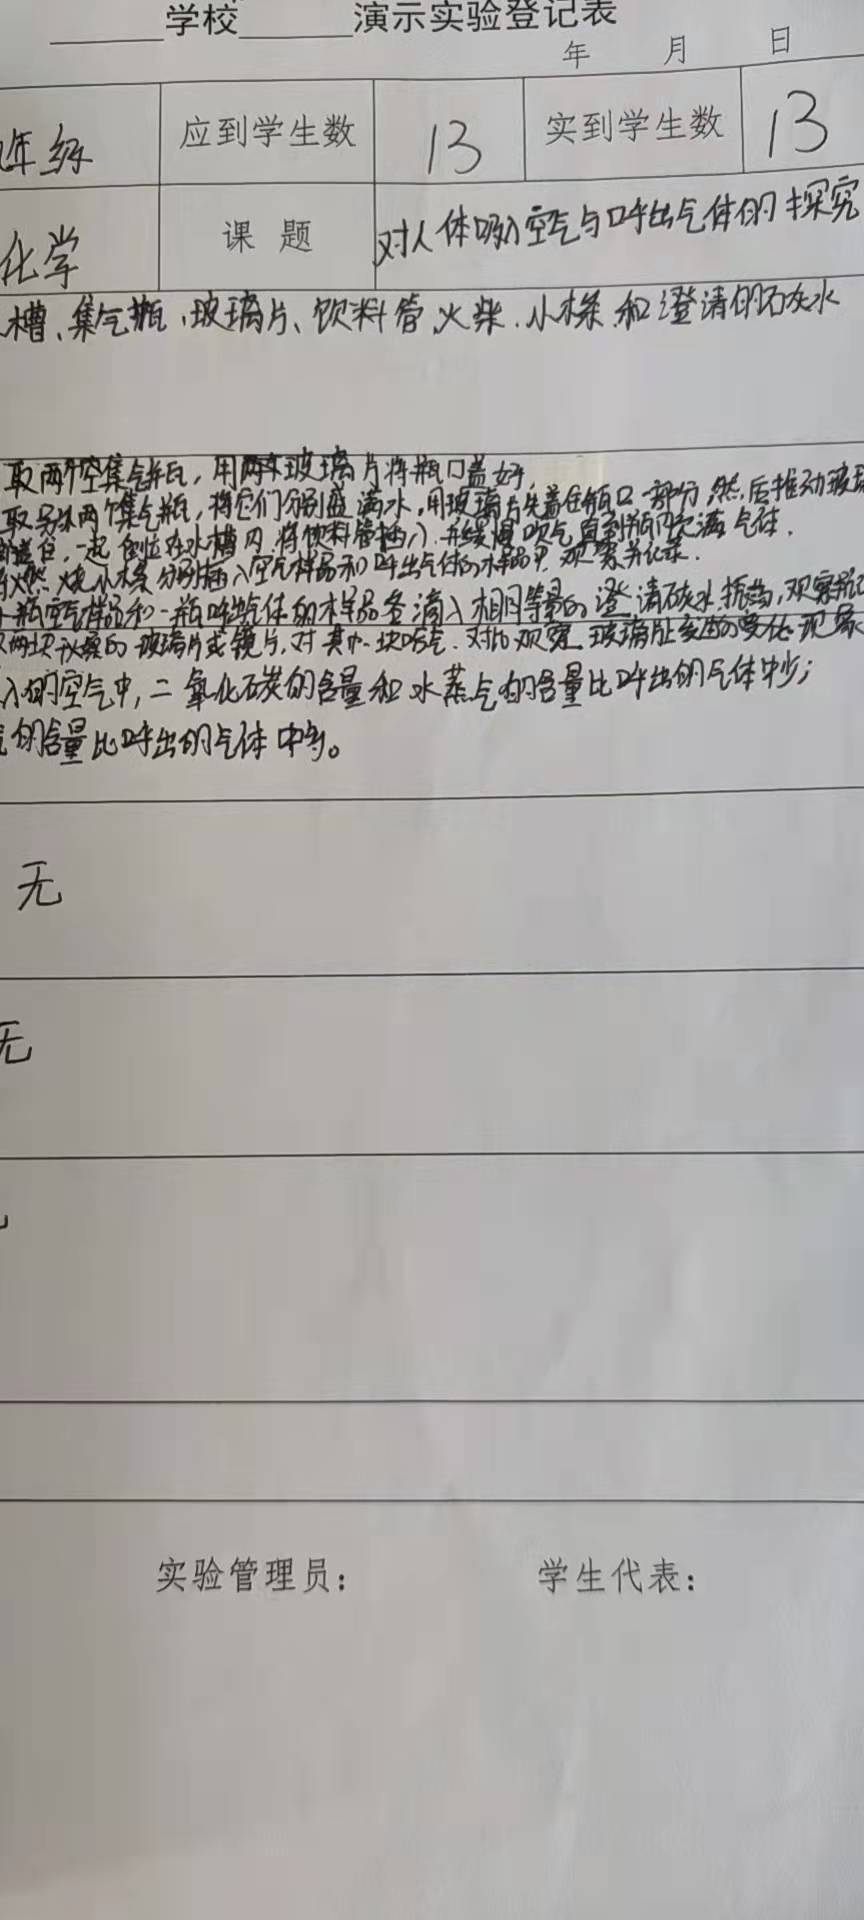 学校 演示实验登记表
年 月 日
年级 应到学生数 13 实到学生数 13
化学 课 题 对人体吸入空气与呼出气体的探究
槽、集气瓶、玻璃片、饮料管、火柴、小木条和澄清的石灰水
取两个空集气瓶，用两块玻璃片将瓶口盖好，
取另外两个集气瓶，将它们分别盛满水，用玻璃片先盖住瓶口一部分，然后推动玻璃
盖住，一起倒立在水槽内，将饮料管插入，并缓慢吹气直到瓶内充满气体．
将燃烧小木条分别插入空气样品和呼出气体的样品中，观察并记录．
一瓶空气样品和一瓶呼出气体的样品各滴入相同等量的澄清石灰水，振荡，观察并记
两块干燥的玻璃片或镜片，对其中一块哈气．对比观察玻璃片上发生的变化现象
入的空气中，二氧化碳的含量和水蒸气的含量比呼出的气体中少；
气的含量比呼出的气体中多。
无
无
实验管理员： 学生代表：